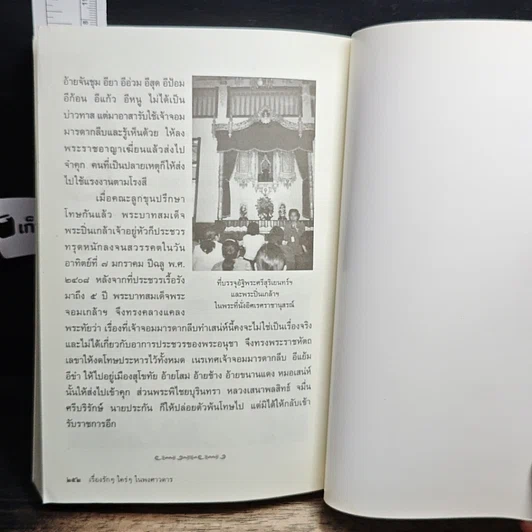 อ้ายจันชุม อียา อีอ่วม อีสุด อีป้อม
อีก้อน อีแก้ว อีหนู ไม่ได้เป็น
บ่าวทาส แต่มาอาสารับใช้เจ้าจอม
มารดากลีบและรู้เห็นด้วย ให้ลง
พระราชอาญาเฆี่ยนแล้วส่งไป
จำคุก คนที่เป็นปลายเหตุก็ให้ส่ง
ไปใช้แรงงานตามโรงสี
เมื่อคณะลูกขุนปรึกษา
โทษกันแล้ว พระบาทสมเด็จ
พระปิ่นเกล้าเจ้าอยู่หัวก็ประชวร
ทรุดหนักลงจนสวรรคตในวัน
อาทิตย์ที่ ๗ มกราคม ปีฉลู พ.ศ.
๒๔๐๘ หลังจากที่ประชวรเรื้อรัง
มาถึง ๕ ปี พระบาทสมเด็จพระ
จอมเกล้าฯ จึงทรงคลางแคลง
พระทัยว่า เรื่องที่เจ้าจอมมารดากลีบทำเสน่ห์นี้คงจะไม่ใช่เป็นเรื่องจริง
และไม่ได้เกี่ยวกับอาการประชวรของพระอนุชา จึงทรงพระราชหัตถ
เลขาให้งดโทษประหารไว้ทั้งหมด เนรเทศเจ้าจอมมารดากลีบ อีแย้ม
อีขำ ให้ไปอยู่เมืองสุโขทัย อ้ายโสม อ้ายช้าง อ้ายขนานแดง หมอเสน่ห์
นั้นให้ส่งไปเข้าคุก ส่วนพระพิไชยบุรินทรา หลวงเสนาพลสิทธ์ จมื่น
ศรีบริรักษ์ นายประกัน ก็ให้ปล่อยตัวพ้นโทษไป แต่มิได้ให้กลับเข้า
รับราชการอีก
ที่บรรจุอัฐิพระศรีสุริเยนทร์ฯ
และพระปิ่นเกล้าฯ
ในพระที่นั่งอิศเรศราชานุสรณ์
๒๕๒ เรื่องรักๆ ใคร่ๆ ในพงศาวดาร